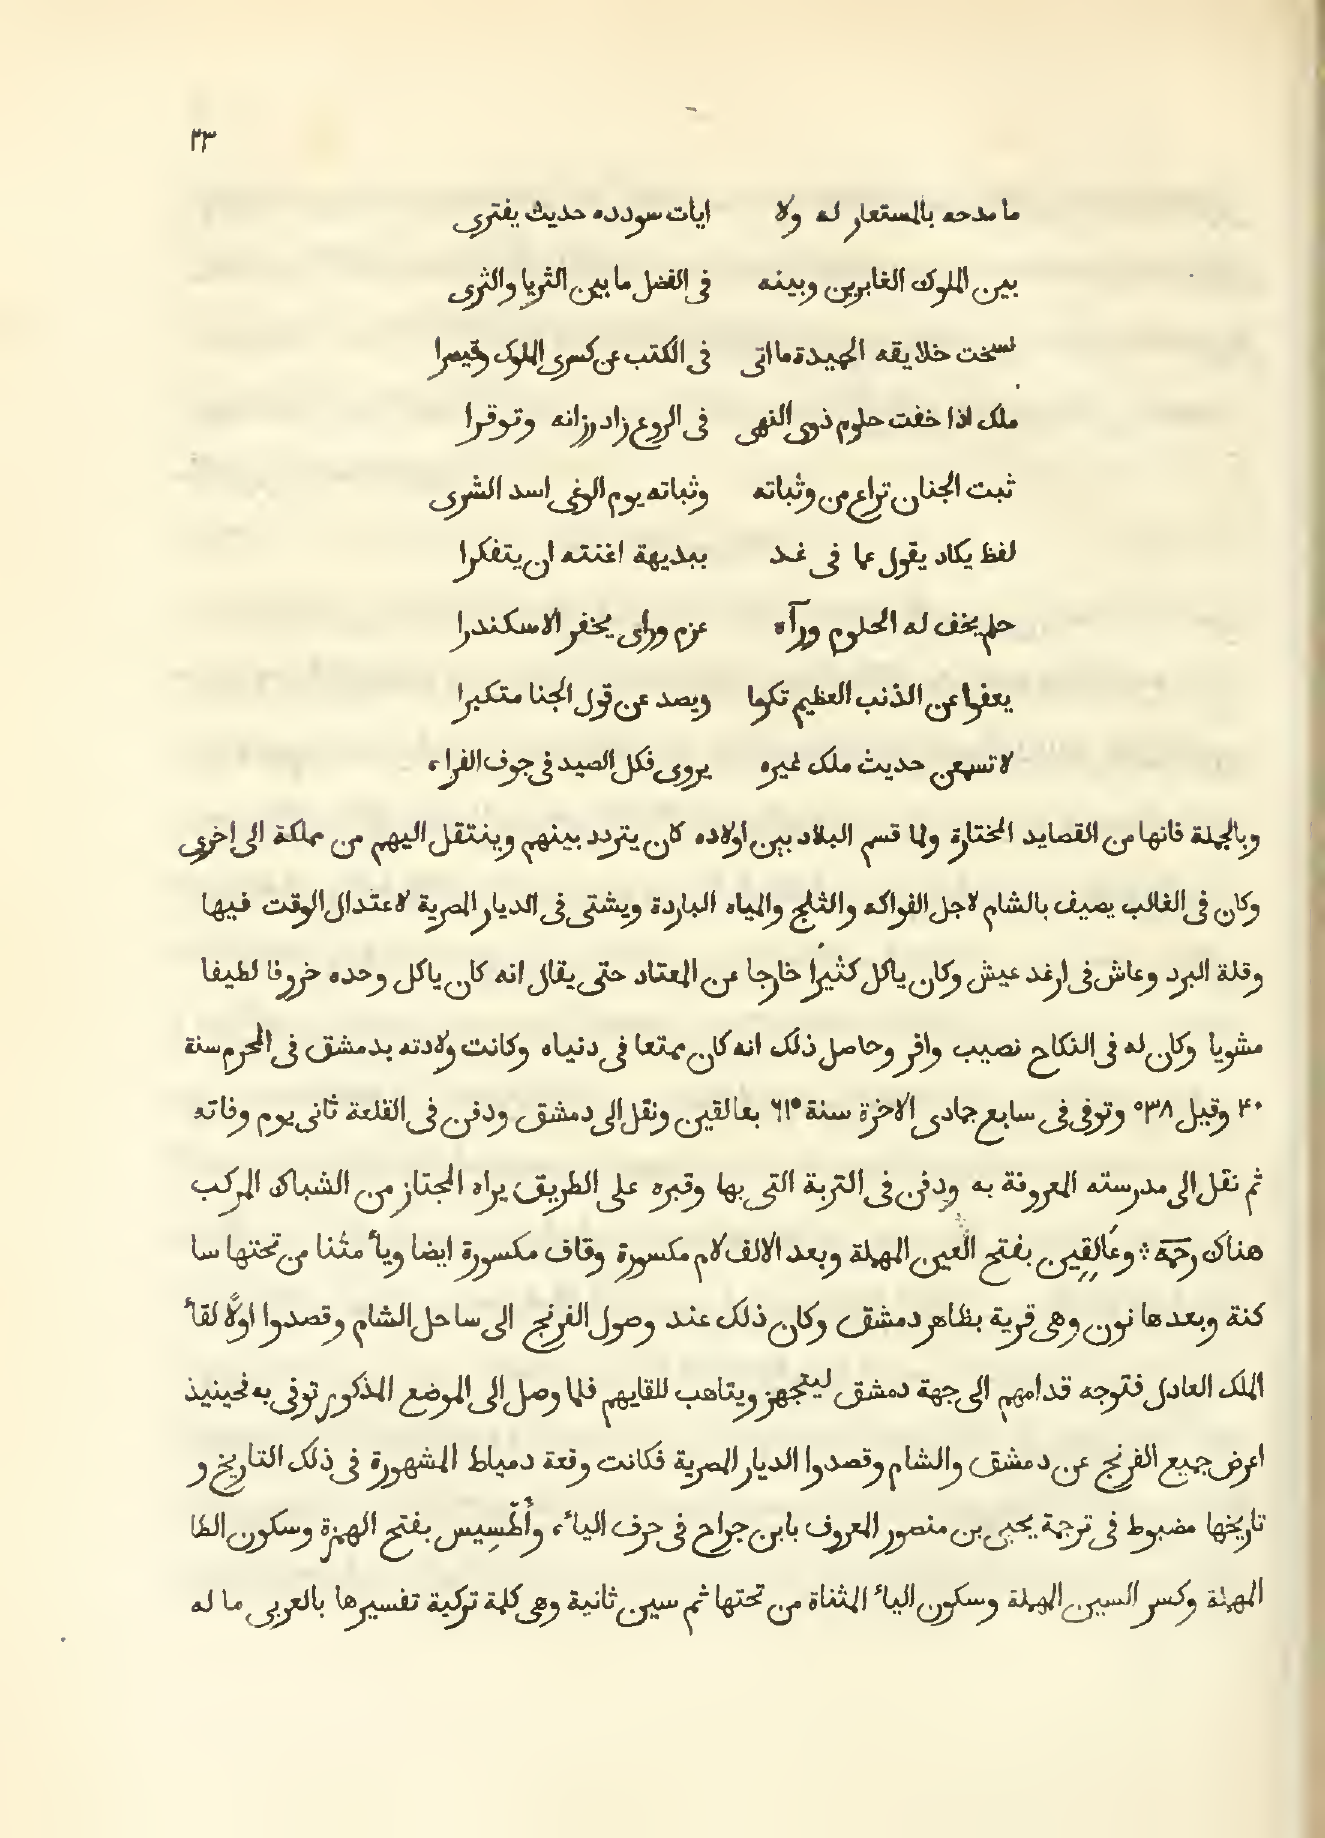 ٢٣
ما مدحه بالمستعار له ولا ايات سودده حديث يفترى
بين الملوك الغابرين وبينه فى الفضل ما بين الثريا والثرى
نسخت خلايقه الحميدة ما اتى فى الكتب عن كسرى الملوك وقيصرا
ملك اذا خفت حلوم ذوى النهى فى الروع زاد رزانه وتوقرا
ثبت الجنان تراع من وثباته وثباته يوم الوغى اسد الشرى
لفظ يكاد يقول عما فى غد ببديهة اغنته ان يتفكرا
حلم يخف له الحلوم ورآه عزم وراى يخفر الاسكندرا
يعفوا عن الذنب العظيم تكرما ويصد عن قول الخنا متكبرا
لا تسمعن حديث ملك غيره يروى فكل الصيد فى جوف الفراء
وبالجملة فانها من القصايد المختارة ولما قسم البلاد بين اولاده كان يتردد بينهم وينتقل اليهم من مملكة الى اخرى
وكان فى الغالب يصيف بالشام لاجل الفواكه والثلج والمياه الباردة ويشتى فى الديار المصرية لاعتدال الوقت فيها
وقلة البرد وعاش فى ارغد عيش وكان ياكل كثيرا خارجا عن المعتاد حتى يقال انه كان ياكل وحده خروفا لطيفا
مشويا وكان له فى النكاح نصيب وافر وحاصل ذلك انه كان ممتعا فى دنياه وكانت ولادته بدمشق فى المحرم سنة
٤٠ وقيل ٥٣٨ وتوفى فى سابع جمادى الاخرة سنة ٦١٥ بعالقين ونقل الى دمشق ودفن فى القلعة ثانى يوم وفاته
ثم نقل الى مدرسته المعروفة به ودفن فى التربة التى بها وقبره على الطريق يراه المجتاز من الشباك المركب
هناك رحمة ؞ وعَالِقِين بفتح العين المهملة وبعد الالف لام مكسورة وقاف مكسورة ايضا وياء مثنا من تحتها سا
كنة وبعدها نون وهى قرية بظاهر دمشق وكان ذلك عند وصول الفرنج الى ساحل الشام وقصدوا اولًا لقاء
الملك العادل فتوجه قدامهم الى جهة دمشق ليتجهز ويتاهب للقايهم فلما وصل الى الموضع المذكور توفى به فحينيذ
اعرض جميع الفرنج عن دمشق والشام وقصدوا الديار المصرية فكانت وقعة دمياط المشهورة فى ذلك التاريخ و
تاريخها مضبوط فى ترجمة يحيى بن منصور المعروف بابن جراح فى حرف الياء، وأَطْسِيس بفتح الهمزة وسكون الطا
المهملة وكسر السين المهملة وسكون الياء المثناة من تحتها ثم سين ثانية وهى كلمة تركية تفسيرها بالعربى ما له